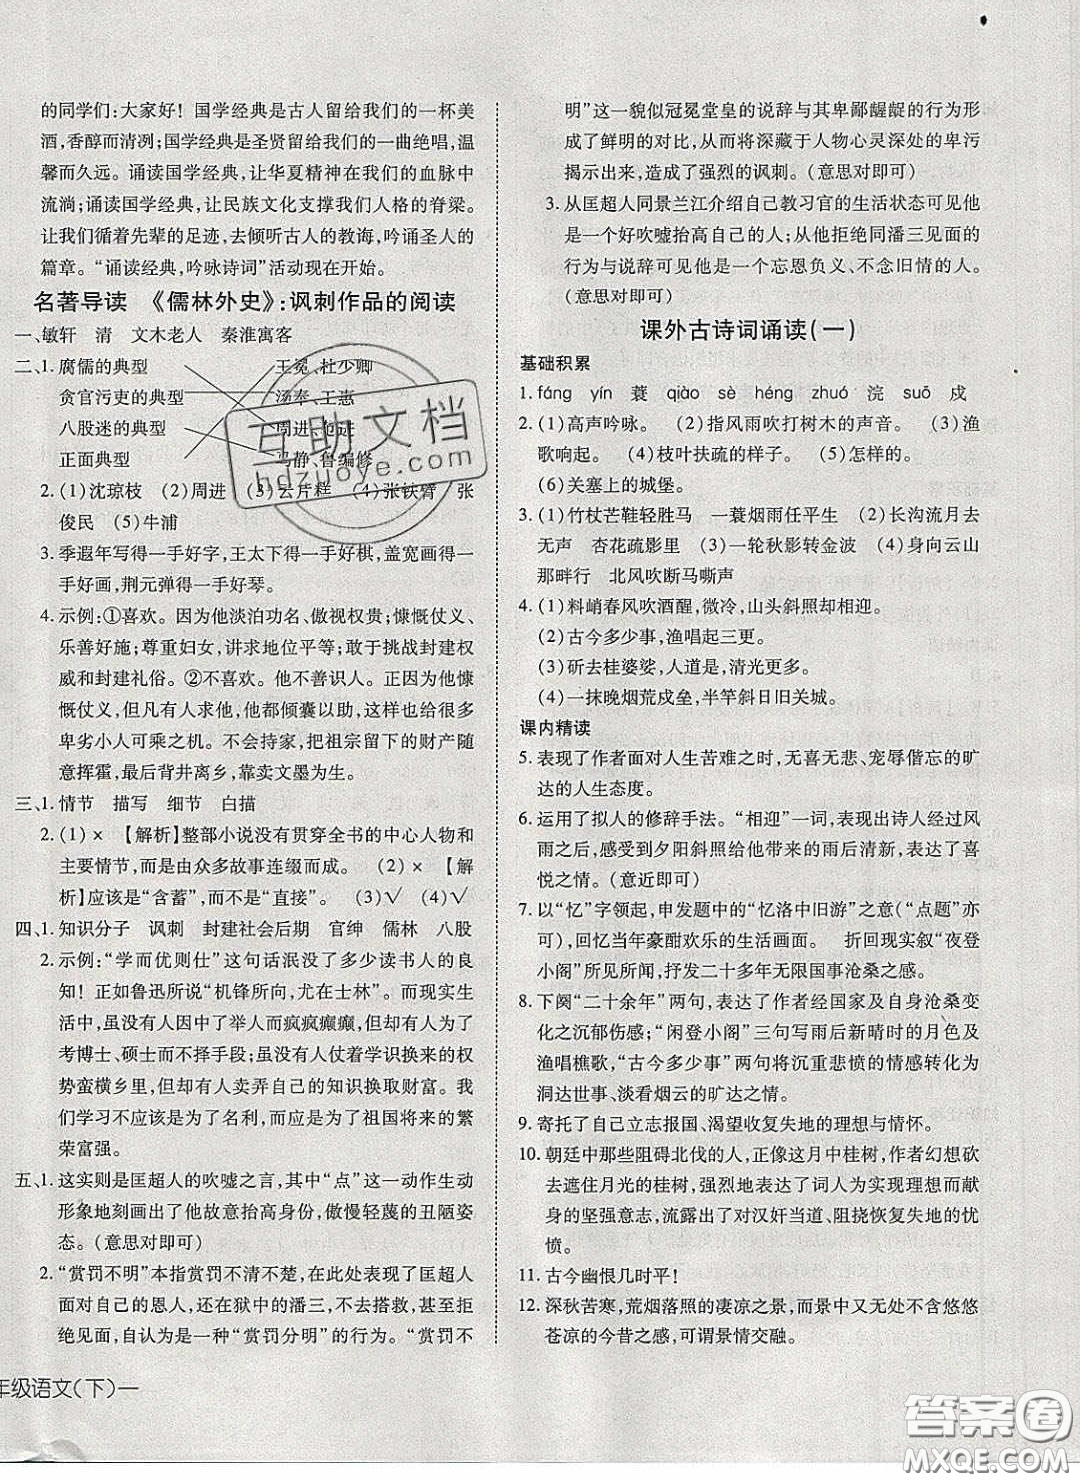 的同学们：大家好！国学经典是古人留给我们的一杯美
酒，香醇而清冽；国学经典是圣贤留给我们的一曲绝唱，温
馨而久远。诵读国学经典，让华夏精神在我们的血脉中
流淌；诵读国学经典，让民族文化支撑我们人格的脊梁。
让我们循着先辈的足迹，去倾听古人的教诲，吟诵圣人的
篇章。“诵读经典，吟咏诗词”活动现在开始。
名著导读 《儒林外史》：讽刺作品的阅读
一、敏轩 清 文木老人 秦淮寓客
二、1. 腐儒的典型 王冕、杜少卿
贪官污吏的典型 汤奉、王惠
八股迷的典型 周进、范进
正面典型 马静、鲁编修
2. (1)沈琼枝 (2)周进 (3)云片糕 (4)张铁臂 张
俊民 (5)牛浦
3. 季遐年写得一手好字，王太下得一手好棋，盖宽画得一
手好画，荆元弹得一手好琴。
4. 示例：①喜欢。因为他淡泊功名、傲视权贵；慷慨仗义、
乐善好施；尊重妇女，讲求地位平等；敢于挑战封建权
威和封建礼俗。②不喜欢。他不善识人。尽管他慷
慨仗义，但凡有人求他，他都倾囊以助，却也给了很多
卑劣小人可乘之机。不会持家，把祖宗留下的财产随
意挥霍，最后背井离乡，靠卖文墨为生。
三、1. 情节 描写 细节 白描
2. (1)× 【解析】整部小说没有贯穿全书的中心人物和
主要情节，而是由众多故事连缀而成。 (2)× 【解
析】应该是“含蓄”，而不是“直接”。 (3)√ (4)√
四、1. 知识分子 讽刺 封建社会后期 官绅 儒林 八股
2. 示例：“学而优则仕”这句话泯没了多少读书人的良
知！正如鲁迅所说“机锋所向，尤在士林”。而现实生
活中，虽没有人因为中了举人而疯疯癫癫，却有人为了
考博士、硕士而不择手段；虽没有人仗着学识换来的权
势蛮横乡里，但却有人卖弄自己的知识换取财富。我
们学习不单单是为了名利，而是为了祖国将来的繁
荣富强。
五、1. 这实则是匡超人的吹嘘之言，其中“点”这一动作生动
形象地刻画出了他故意抬高身份，傲慢轻蔑的丑陋姿
态。（意思对即可）
2. “赏罚不明”本指赏罚不清不楚，在此处表现了匡超人
面对自己的恩人，还在狱中的潘三，不去搭救，甚至拒
绝见面，自认为是一种“赏罚分明”的行为。“赏罚不
年级语文(下)—
明”这一貌似冠冕堂皇的说辞与其卑鄙龌龊的行为形
成了鲜明的对比，从而将深藏于人物心灵深处的卑污
揭示出来，造成了强烈的讽刺。（意思对即可）
3. 从匡超人同景兰江介绍自己教习官的生活状态可见他
是一个好吹嘘抬高自己的人；从他拒绝同潘三见面的
行为与说辞可见他是一个忘恩负义、不念旧情的人。
（意思对即可）
课外古诗词诵读(一)
基础积累
1. fáng yín 蓑 qiào sè héng zhuó 浣 suō 戍
2. (1)高声吟咏。 (2)指风雨吹打树木的声音。 (3)渔
歌响起。 (4)枝叶扶疏的样子。 (5)怎样的。
(6)关塞上的城堡。
3. (1)竹杖芒鞋轻胜马 一蓑烟雨任平生 (2)长沟流月去
无声 杏花疏影里 (3)一轮秋影转金波 (4)身向云山
那畔行 北风吹断马嘶声
4. (1)料峭春风吹酒醒，微冷，山头斜照却相迎。
(2)古今多少事，渔唱起三更。
(3)斫去桂婆娑，人道是，清光更多。
(4)一抹晚烟荒戍垒，半竿斜日旧关城。
课内精读
5. 表现了作者面对人生苦难之时，无喜无悲、宠辱偕忘的旷
达的人生态度。
6. 运用了拟人的修辞手法。“相迎”一词，表现出诗人经过风
雨之后，感受到夕阳斜照给他带来的雨后清新，表达了喜
悦之情。（意近即可）
7. 以“忆”字领起，申发题中的“忆洛中旧游”之意（“点题”亦
可），回忆当年豪酣欢乐的生活画面。 折回现实叙“夜登
小阁”所见所闻，抒发二十多年无限国事沧桑之感。
8. 下阕“二十余年”两句，表达了作者经国家及自身沧桑变
化之沉郁伤感；“闲登小阁”三句写雨后新晴时的月色及
渔唱樵歌，“古今多少事”两句将沉重悲愤的情感转化为
洞达世事、淡看烟云的旷达之情。
9. 寄托了自己立志报国、渴望收复失地的理想与情怀。
10. 朝廷中那些阻碍北伐的人，正如这月中桂树，作者幻想砍
去遮住月光的桂树，强烈地表达了词人为实现理想而战斗
的坚强意志，流露出了对汉奸当道、阻挠恢复失地的忧
愤。
11. 古今幽恨几时平！
12. 深秋苦寒，荒烟落照的凄凉之景，而景中又无处不含悠悠
苍凉的今昔之感，可谓景情交融。
互助文档
hdzuoye.com
答案圈
MXQE.COM